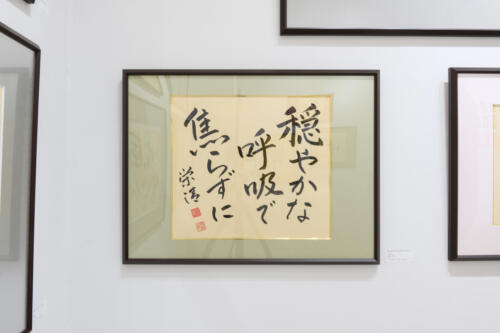 穏やかな
呼吸で
焦らずに